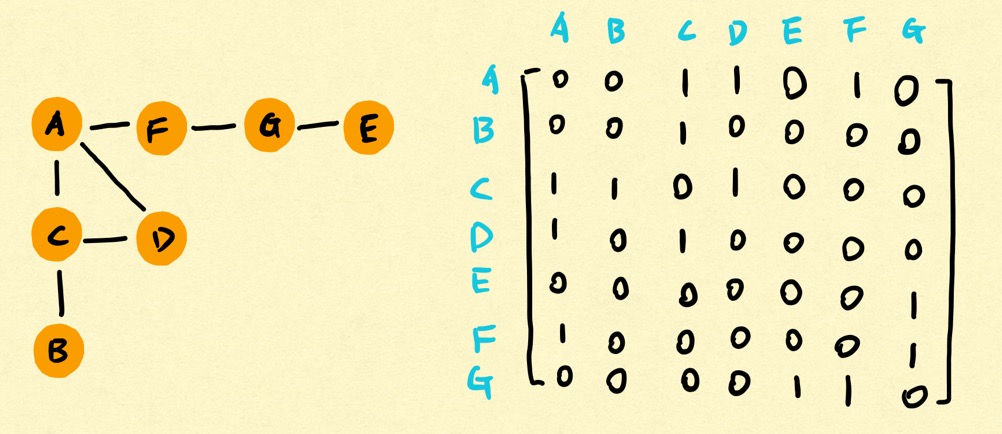 A F G E
C D
B
A B C D E F G
A 0 0 1 1 0 1 0
B 0 0 1 0 0 0 0
C 1 1 0 1 0 0 0
D 1 0 1 0 0 0 0
E 0 0 0 0 0 0 1
F 1 0 0 0 0 0 1
G 0 0 0 0 1 1 0